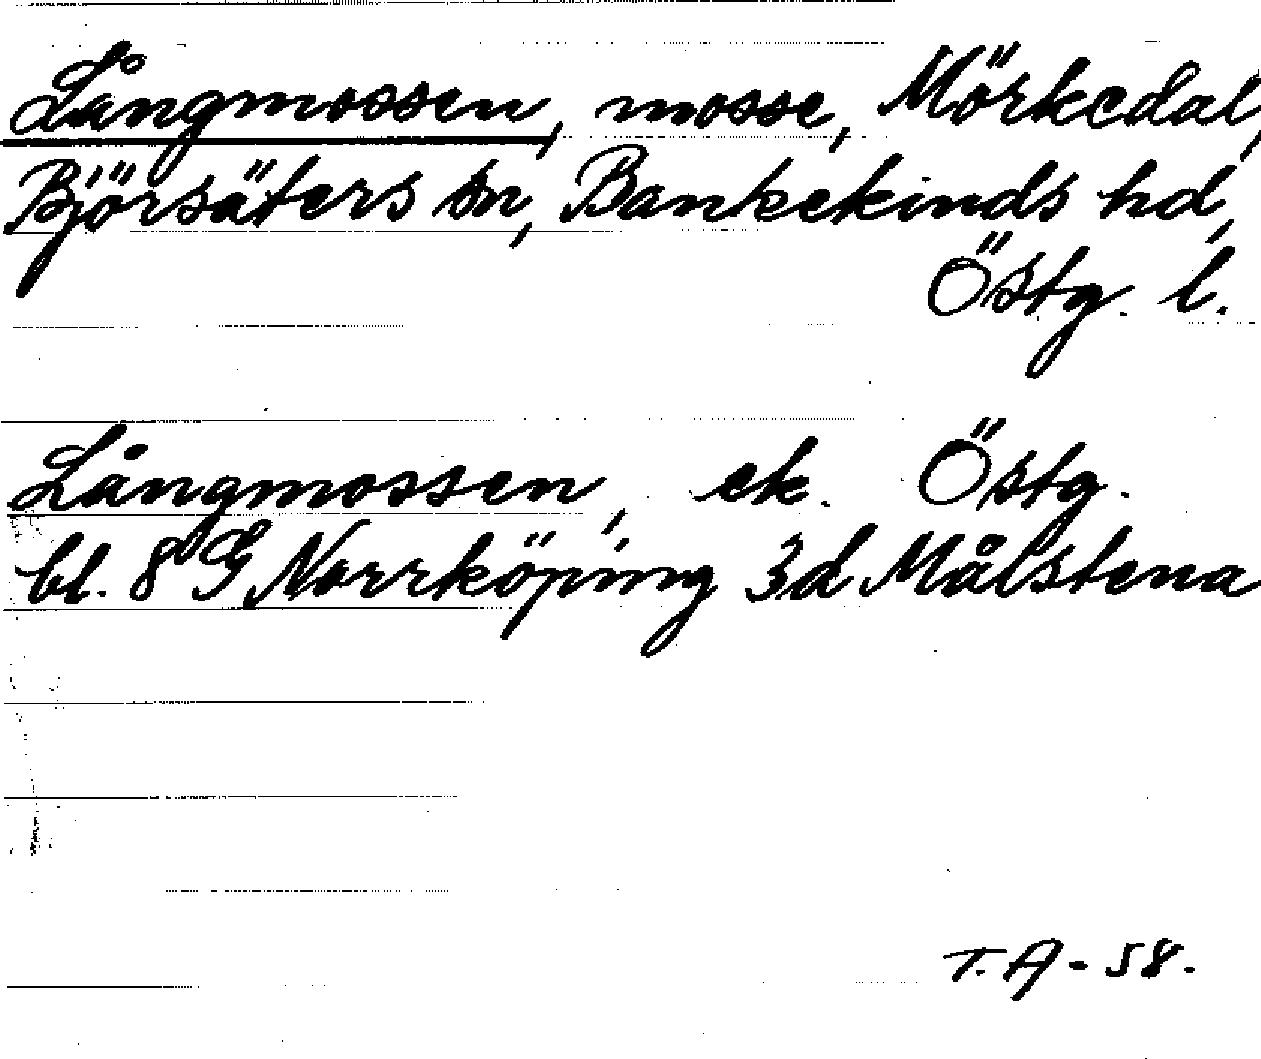 Långmossen, mosse, Mörkedal,
Björsäters sn, Bankekinds hd,
Östg. l.
Långmossen, ek. Östg.
bl. 8 G Norrköping 3d Målstena
T. A - 58.